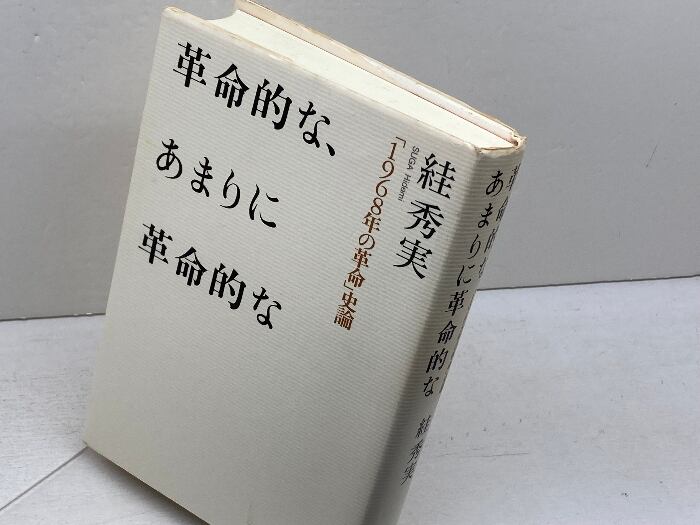 革命的な、
あまりに
革命的な
「1968年の革命」史論
絓秀実
SUGA Hidemi
革命的な、あまりに革命的な
絓秀実